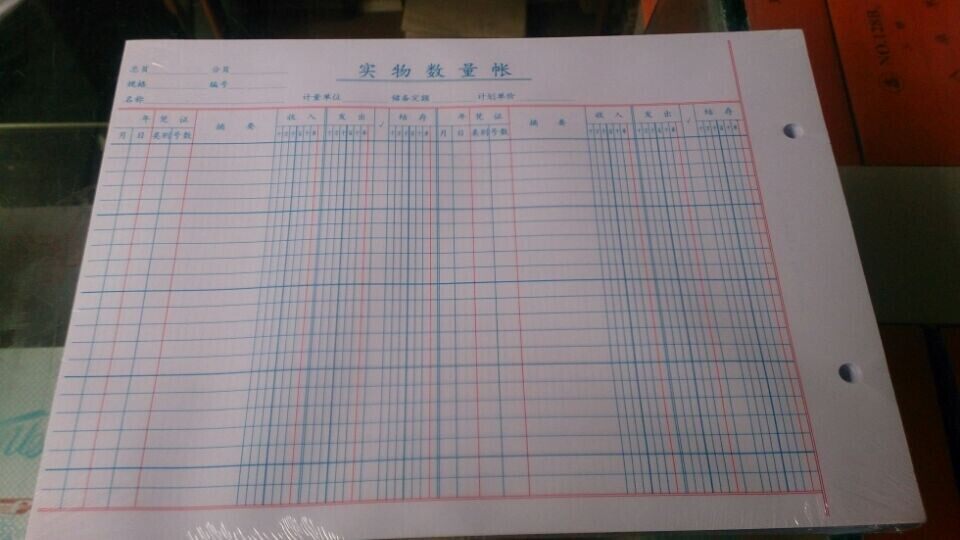 实物数量帐
总页 分页
规格 编号
名称 计量单位 储备定额 计划单价
年 凭证 摘要 收入 发出 √ 结存 年 凭证 摘要 收入 发出 √ 结存
月 日 类别 号数 月 日 类别 号数